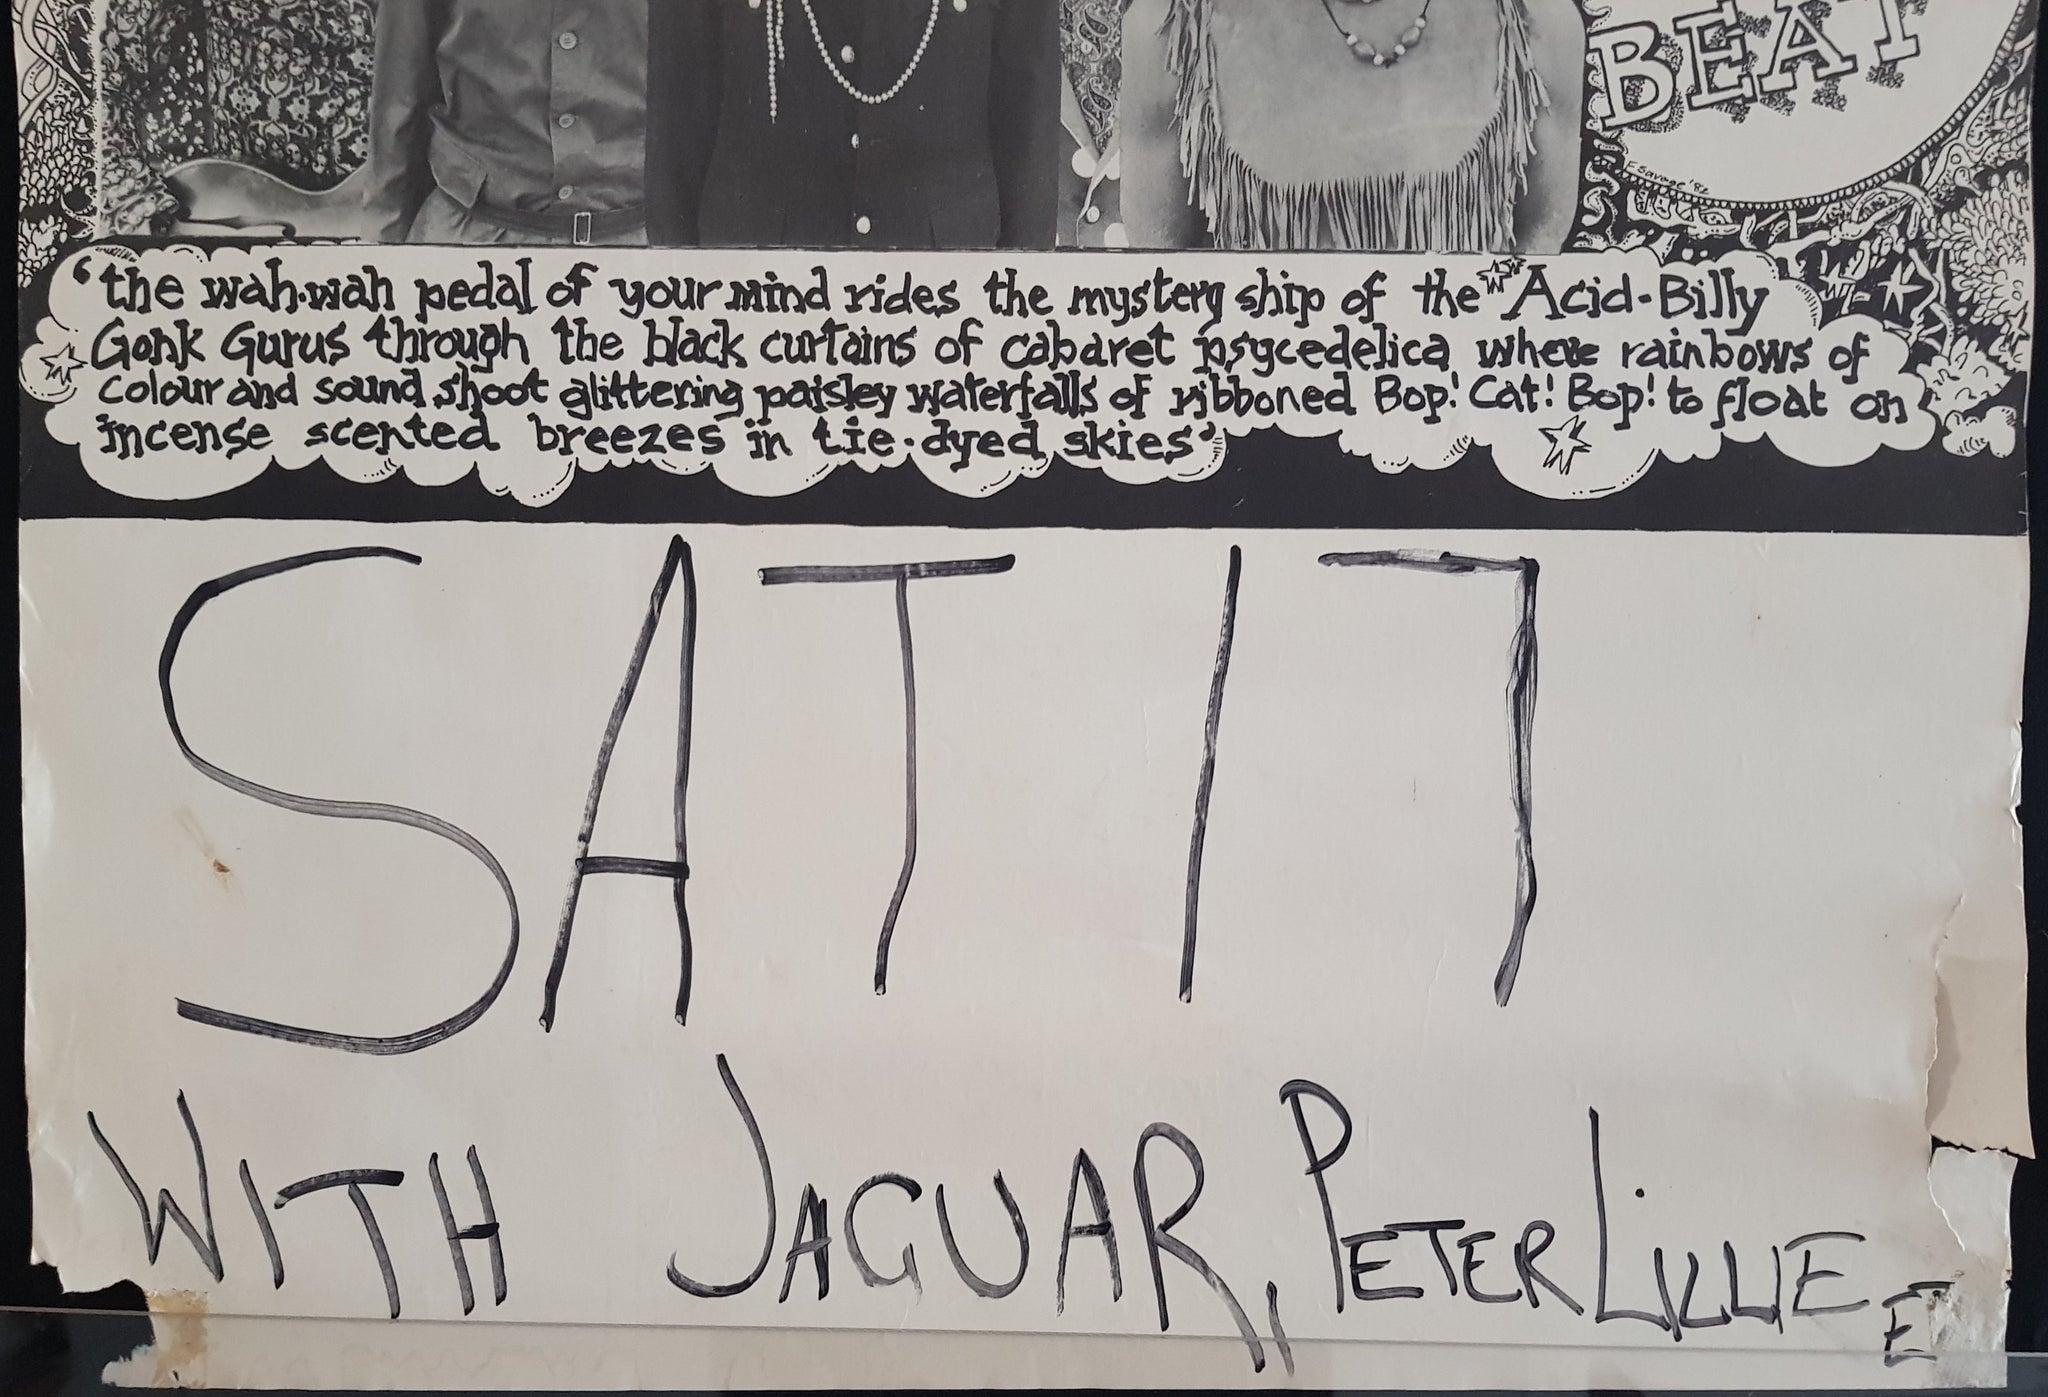 BEAT
F. Savage '82
'the wah-wah pedal of your mind rides the mystery ship of the Acid-Billy
Gonk Gurus through the black curtains of cabaret psycedelica where rainbows of
colour and sound shoot glittering paisley waterfalls of ribboned Bop! Cat! Bop! to float on
incense scented breezes in tie-dyed skies'
SAT 17
WITH JAGUAR, PETER LILLIE